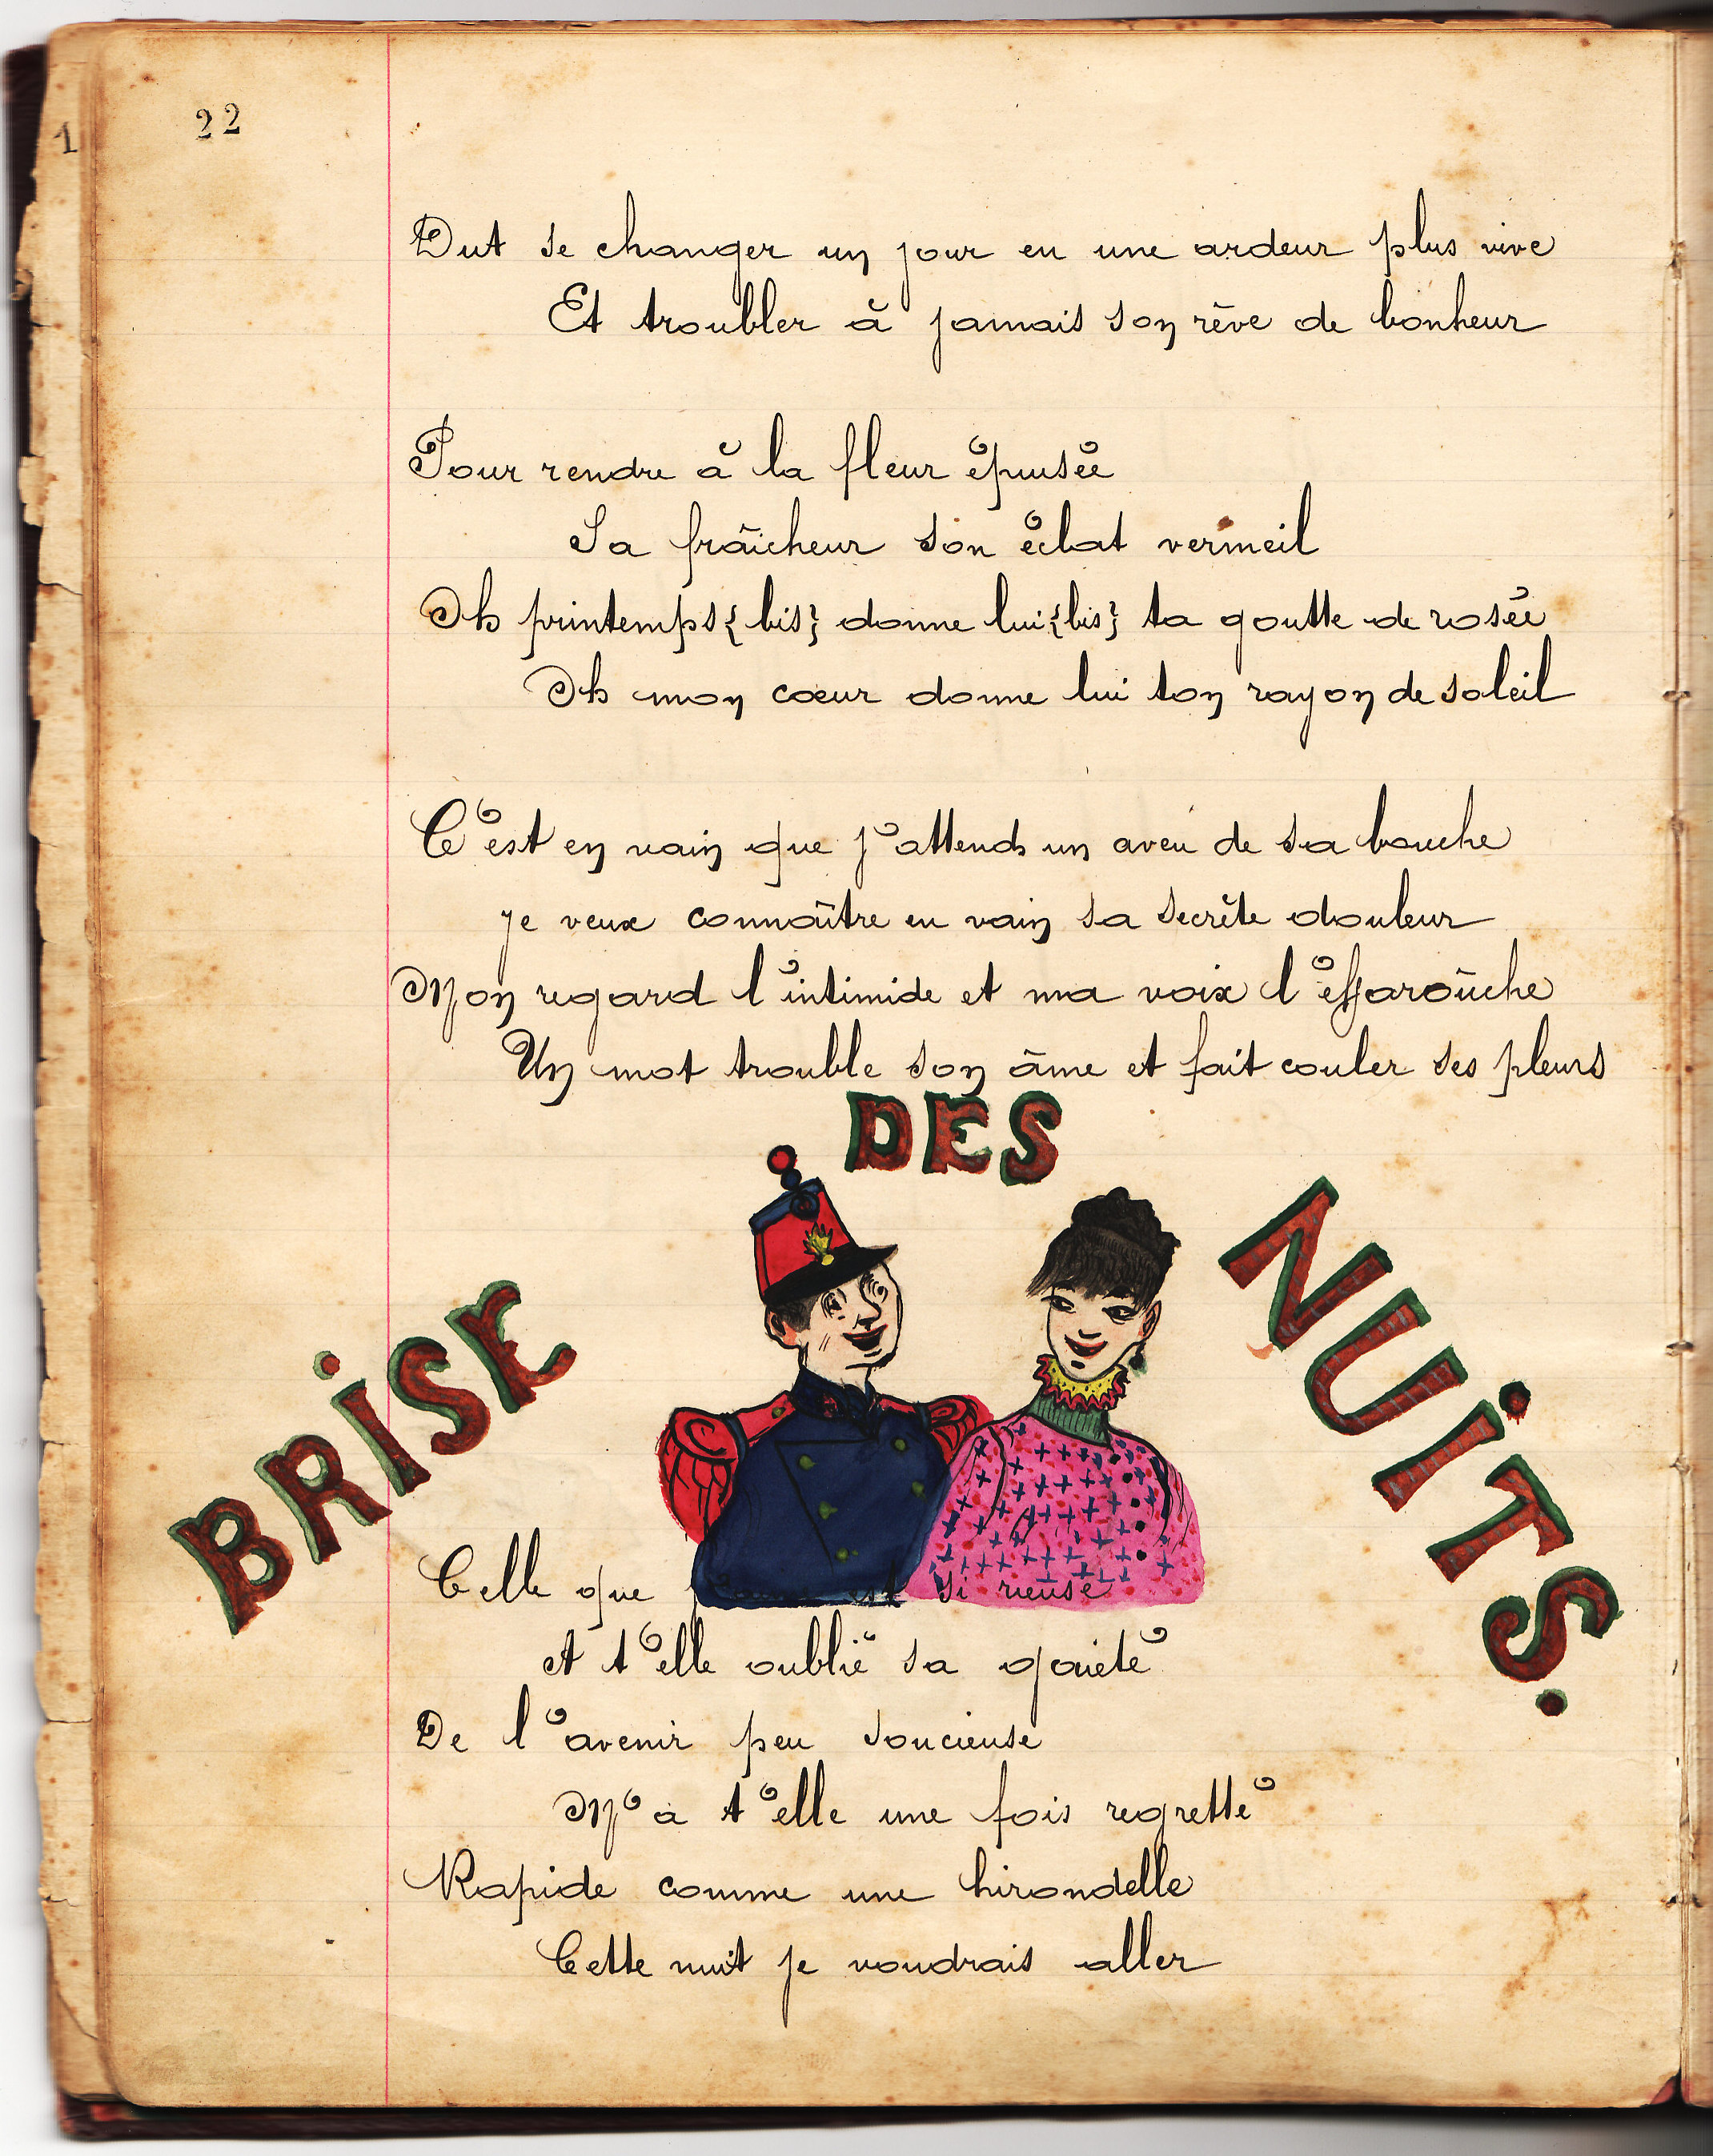 22
1
Dut se changer un jour en une ardeur plus vive
Et troubler à jamais son rêve de bonheur
Pour rendre à la fleur épuisée
Sa fraîcheur son éclat vermeil
Oh printemps {bis} donne lui {bis} ta goutte de rosée
Oh mon cœur donne lui ton rayon de soleil
C'est en vain que j'attends un aveu de sa bouche
je veux connaître en vain sa secrète douleur
Mon regard l'intimide et ma voix l'effaroûche
Un mot trouble son âme et fait couler ses pleurs
BRISE DES NUITS.
Celle que est si rieuse
At t'elle oublié sa gaieté
De l'avenir peu soucieuse
M'a t'elle une fois regretté
Rapide comme une hirondelle
Cette nuit je voudrais aller